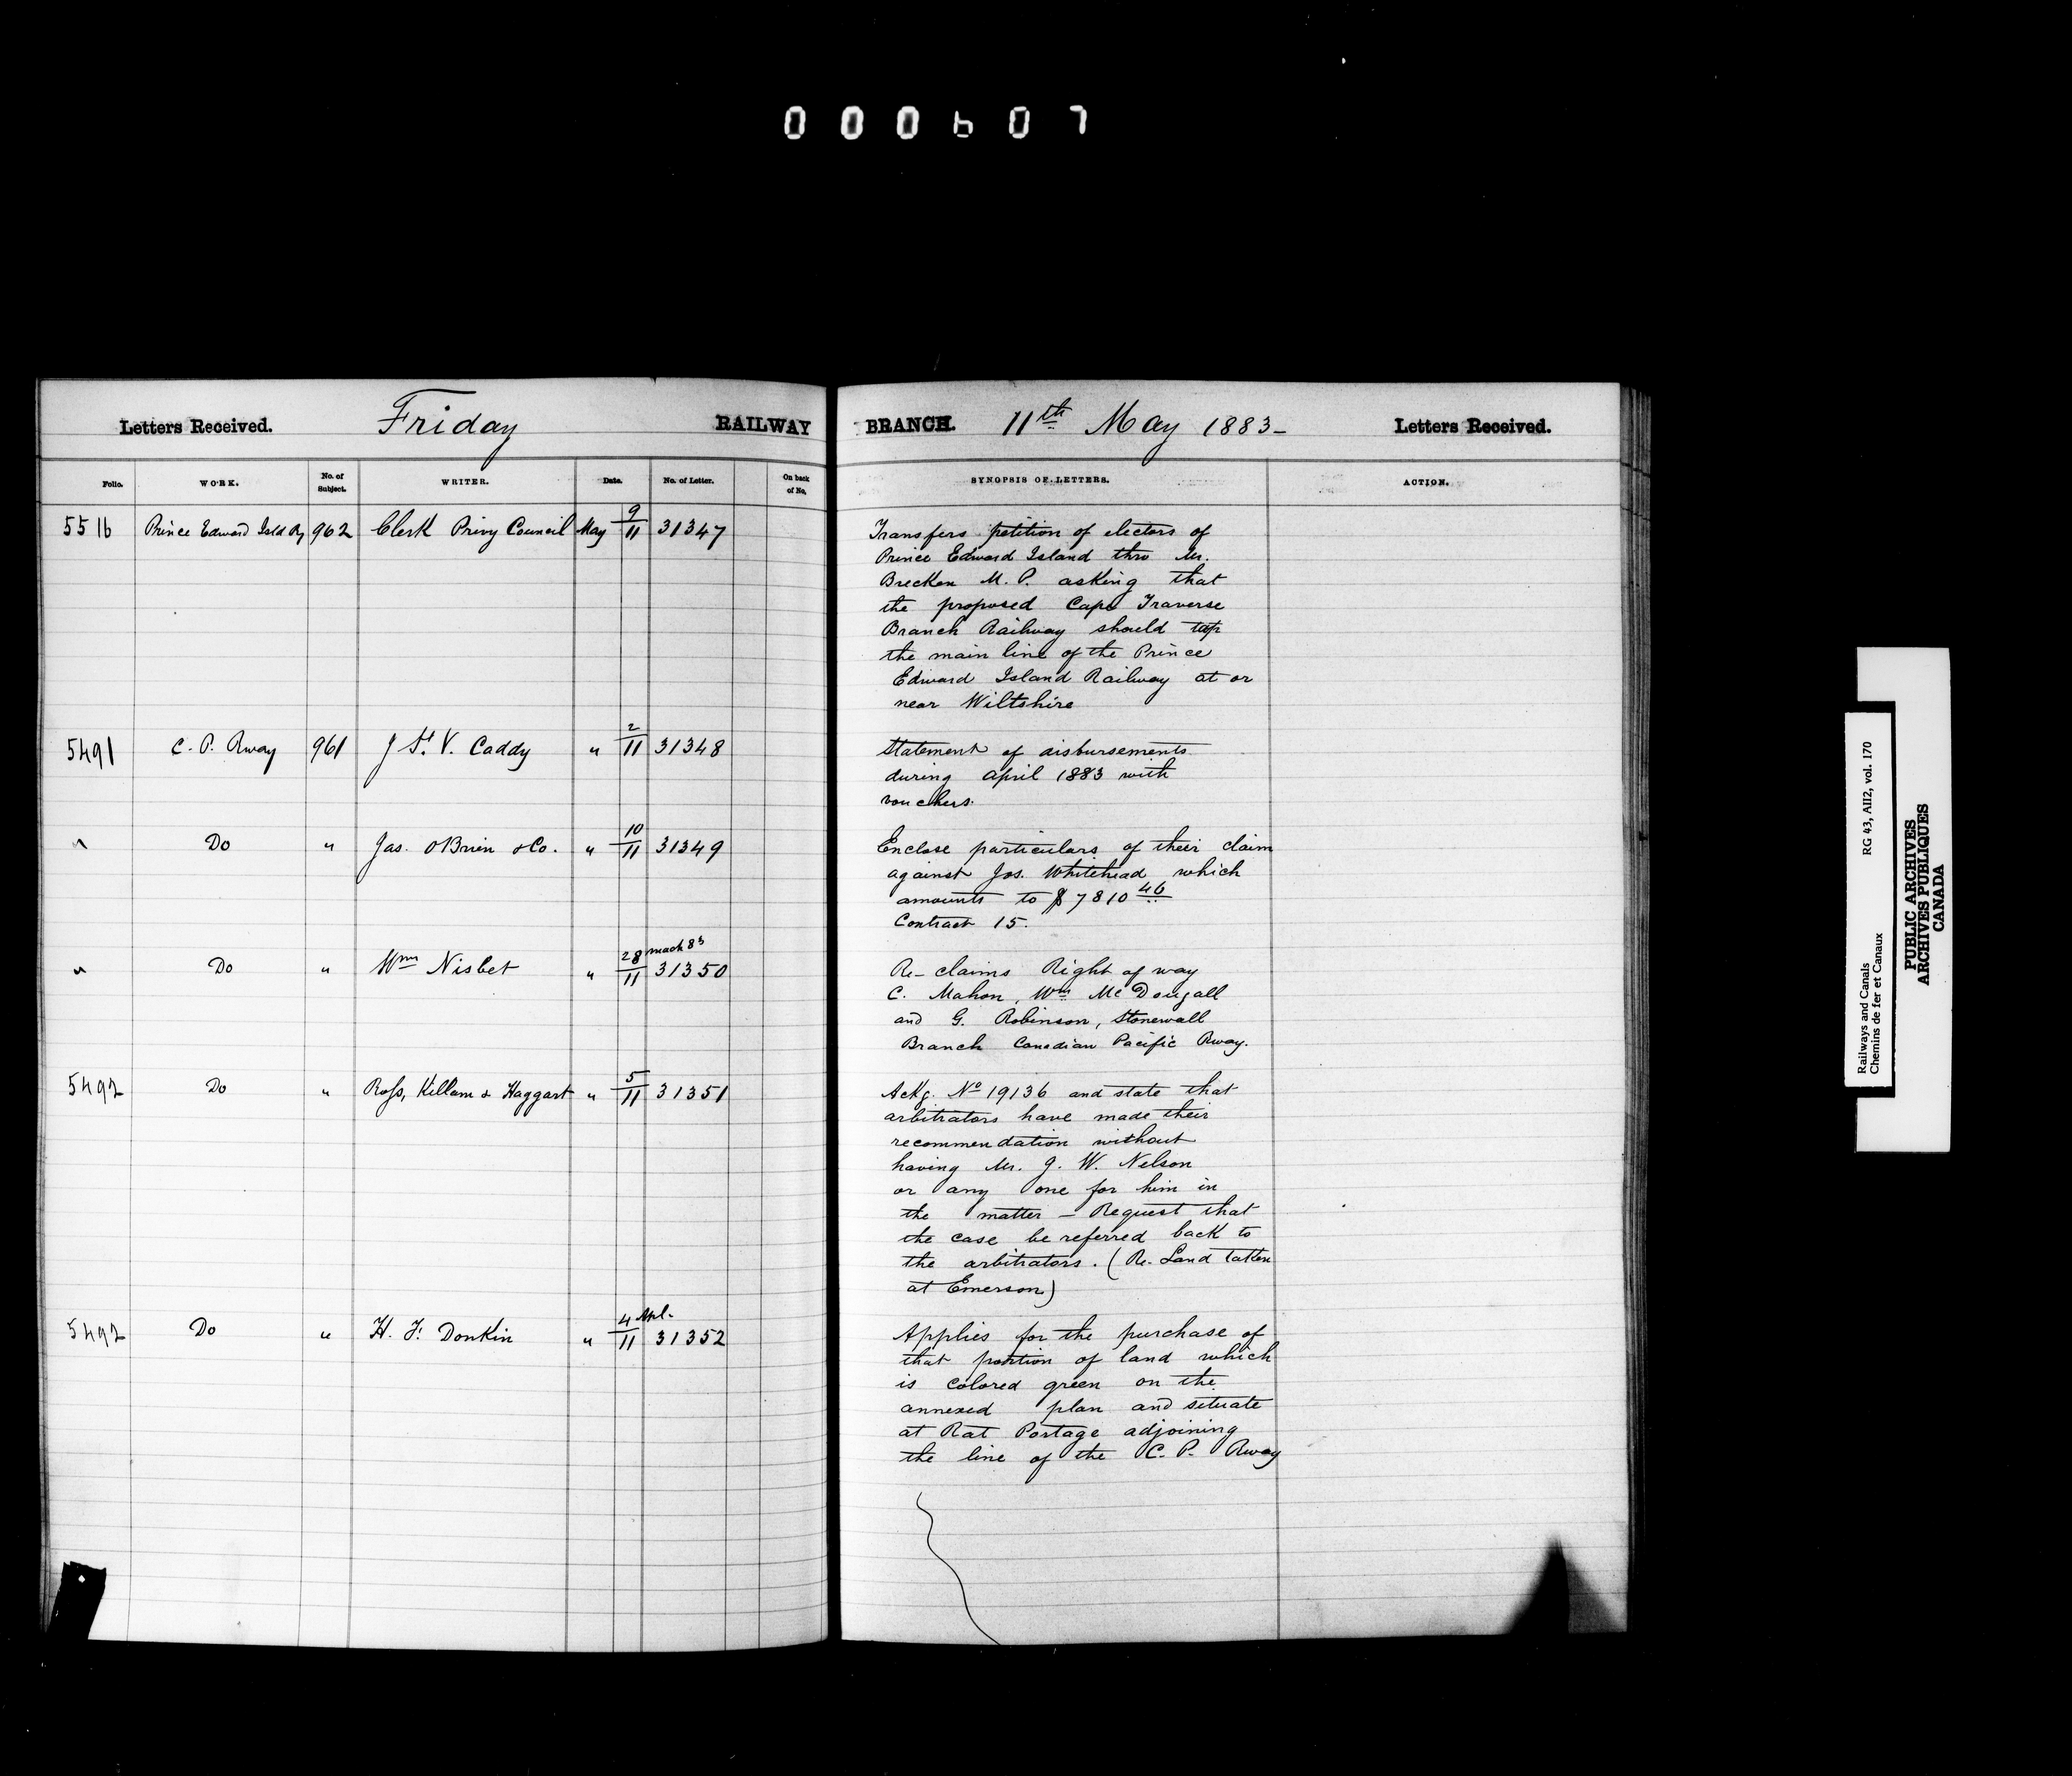 000607
Letters Received. Friday RAILWAY BRANCH. 11th May 1883- Letters Received.
Folio. WORK. No. of Subject. WRITER. Date. No. of Letter. On back of No. SYNOPSIS OF LETTERS. ACTION.
5516 Prince Edward Isld Ry 962 Clerk Privy Council May 9/11 31347 Transfers petition of electors of
Prince Edward Island thro Mr.
Brecken M. P. asking that
the proposed Cape Traverse
Branch Railway should tap
the main line of the Prince
Edward Island Railway at or
near Wiltshire
5491 C. P. Rway 961 J St. V. Caddy " 2/11 31348 Statement of disbursements
during april 1883 with
vouchers.
" Do " Jas. OBrien & Co. " 10/11 31349 Enclose particulars of their claim
against Jos. Whitehead which
amounts to $7810 46
Contract 15.
" Do " Wm Nisbet " 28 mach 83/11 31350 Re- claims Right of way
C. Mahon, Wm McDougall
and G. Robinson, Stonewall
Branch Canadian Pacific Rway.
5492 Do " Ross, Killam & Haggart " 5/11 31351 Ackg. No 19136 and state that
arbitrators have made their
recommendation without
having Mr. J. W. Nelson
or any one for him in
the matter - Request that
the case be referred back to
the arbitrators. (Re- Land taken
at Emerson)
5492 Do " H. F. Donkin " 4 Apl./11 31352 Applies for the purchase of
that portion of land which
is colored green on the
annexed plan and situate
at Rat Portage adjoining
the line of the C. P. Rway
Railways and Canals RG 43, AII2, vol. 170
Chemins de fer et Canaux
PUBLIC ARCHIVES
ARCHIVES PUBLIQUES
CANADA